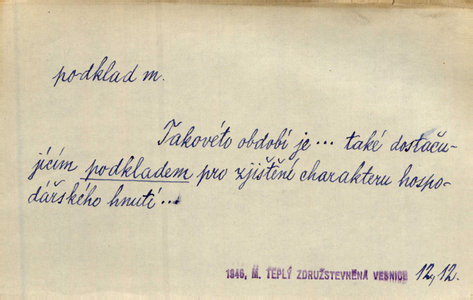 podklad m.
Takovéto období je... také dostaču-
jícím podkladem pro zjištění charakteru hospo-
dářského hnutí...
1946, M. TEPLÝ ZDRUŽSTEVNĚNÁ VESNICE 12, 12.